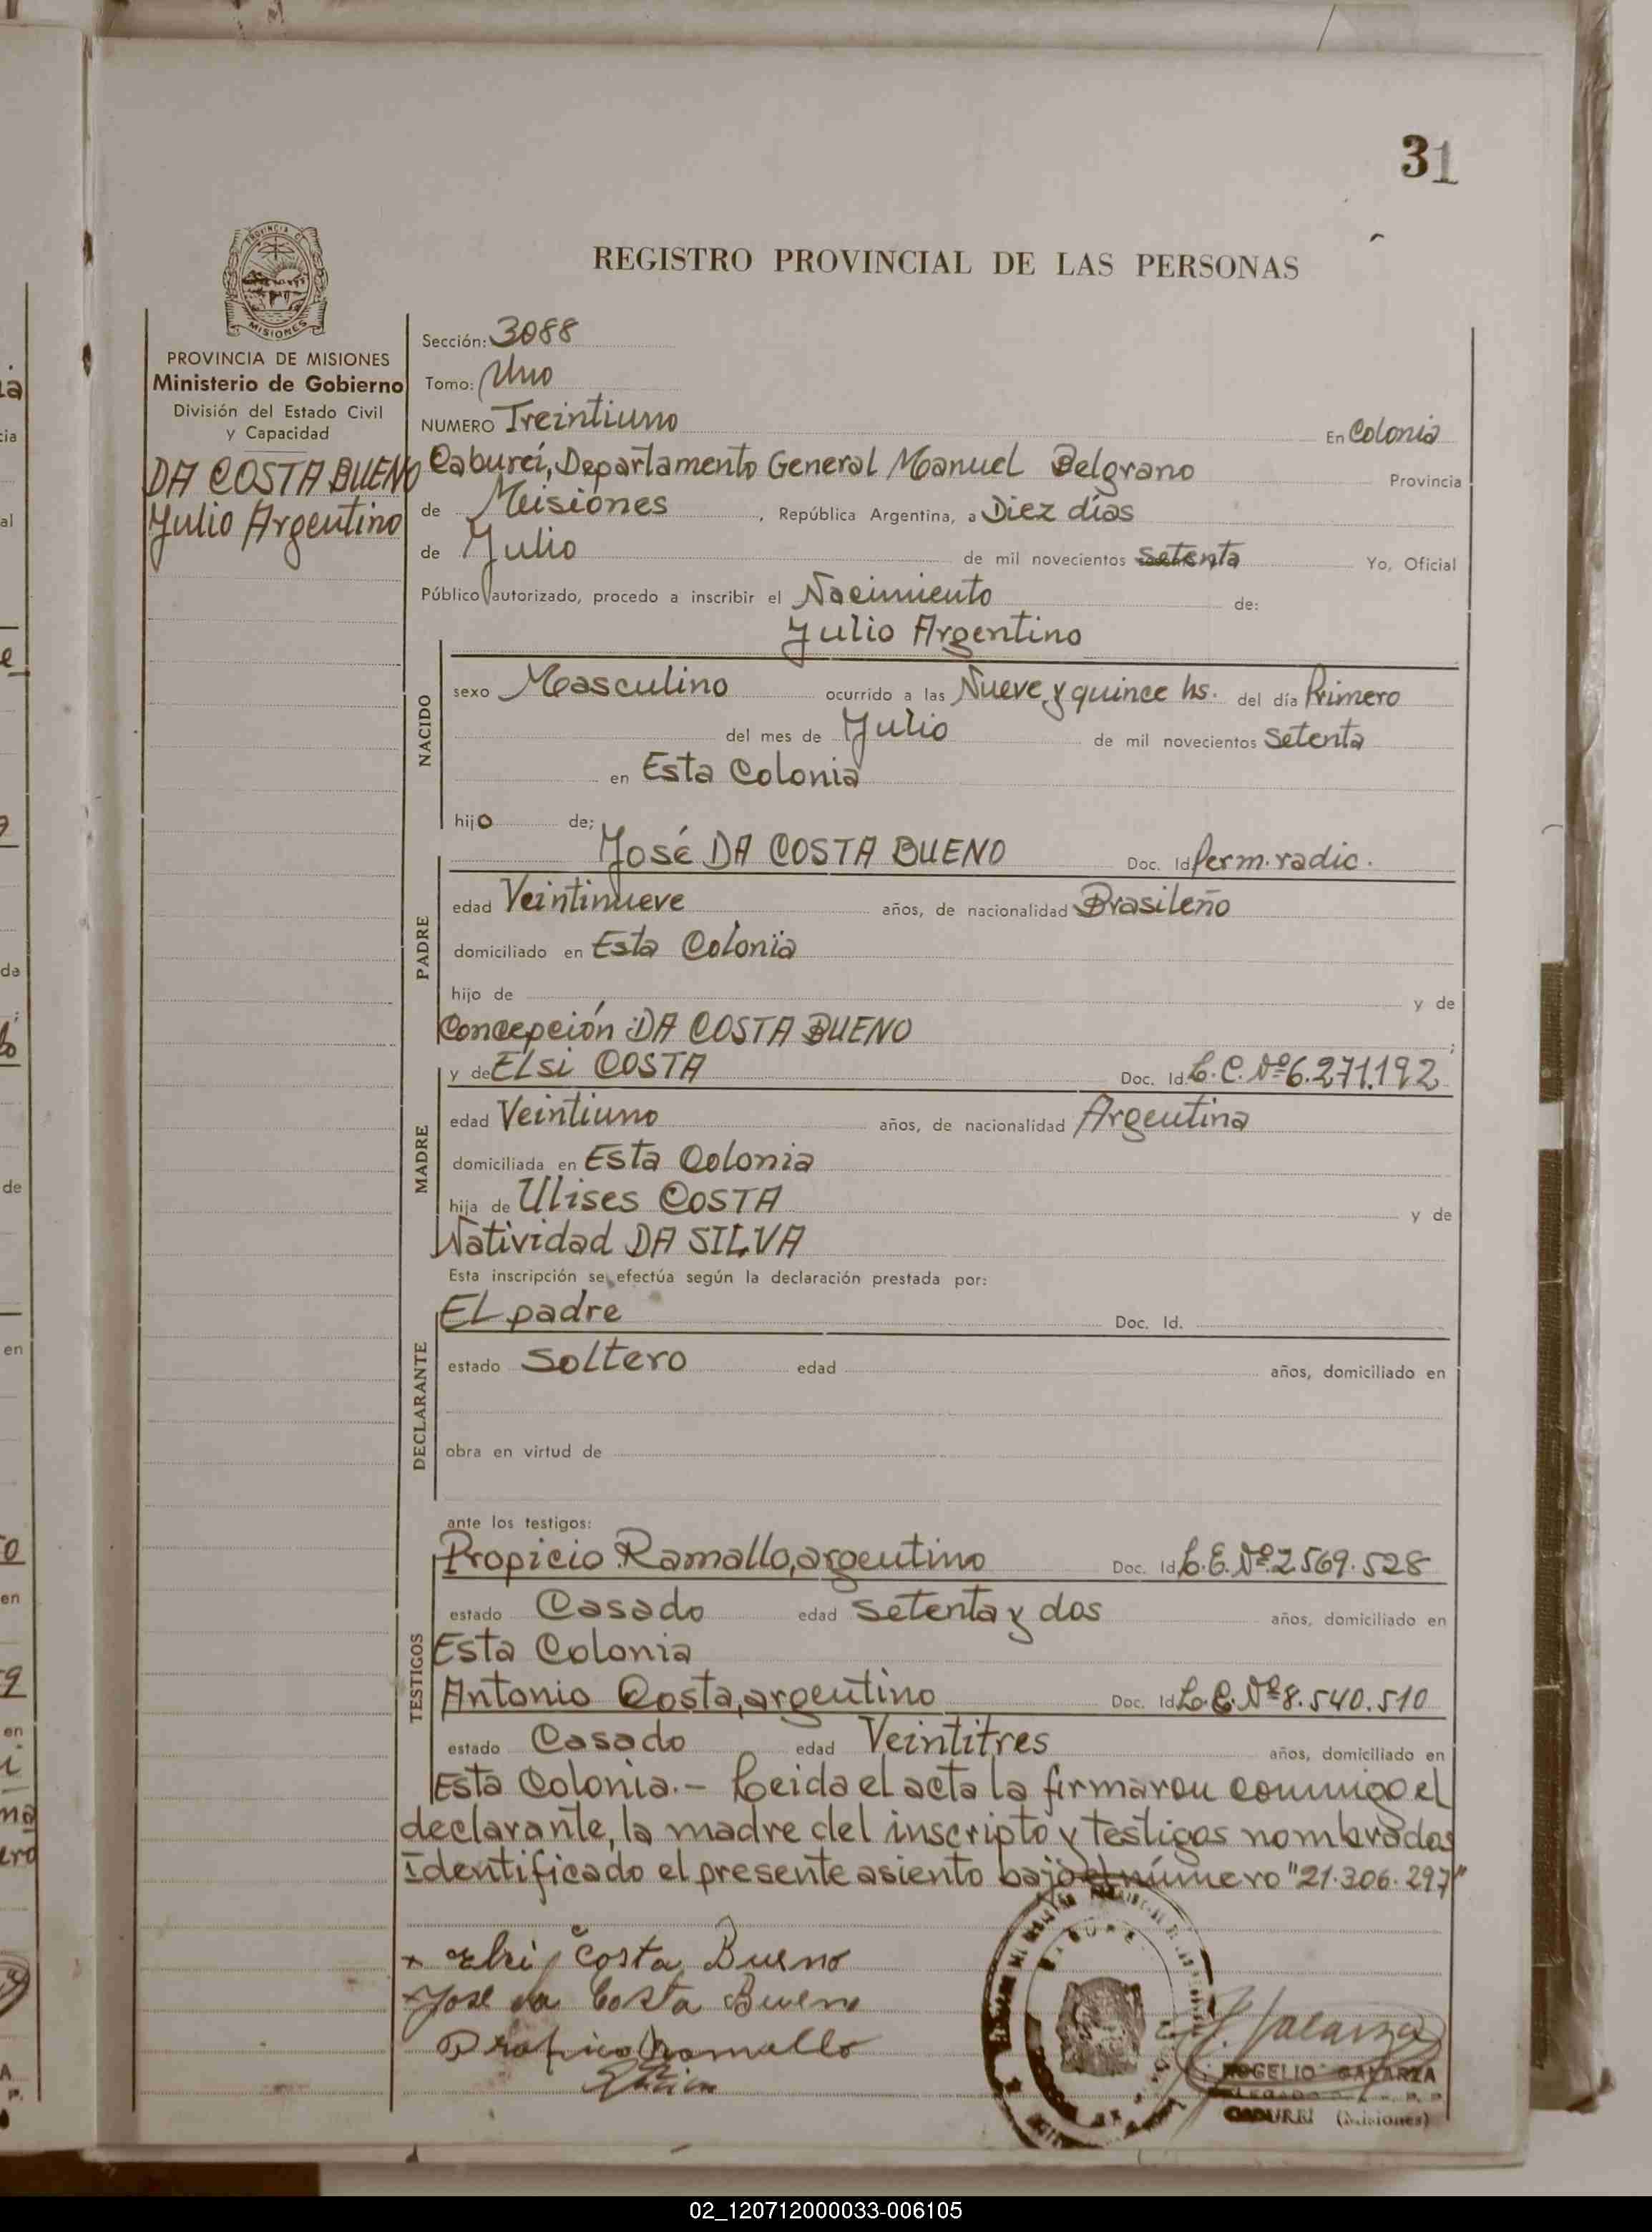 31
REGISTRO PROVINCIAL DE LAS PERSONAS
PROVINCIA DE MISIONES
Ministerio de Gobierno
División del Estado Civil
y Capacidad
DA COSTA BUENO
Julio Argentino
Sección: 3088
Tomo: Uno
NUMERO Treintiuno En Colonia
Caburei, Departamento General Manuel Belgrano Provincia
de Misiones, República Argentina, a Diez días
de Julio de mil novecientos setenta Yo, Oficial
Público autorizado, procedo a inscribir el Nacimiento de:
Julio Argentino
NACIDO
sexo Masculino ocurrido a las Nueve y quince hs. del día Primero
del mes de Julio de mil novecientos Setenta
en Esta Colonia
hijo de;
José DA COSTA BUENO Doc. Id. Perm. radic.
PADRE
edad Veintinueve años, de nacionalidad Brasileño
domiciliado en Esta Colonia
hijo de y de
Concepción DA COSTA BUENO ;
y de ELSi COSTA Doc. Id. L.C. Nº 6.271.192
MADRE
edad Veintiuno años, de nacionalidad Argentina
domiciliada en Esta Colonia
hija de Ulises COSTA y de
Natividad DA SILVA
Esta inscripción se efectúa según la declaración prestada por:
DECLARANTE
EL padre Doc. Id.
estado Soltero edad años, domiciliado en
obra en virtud de
ante los testigos:
TESTIGOS
Propicio Ramallo, argentino Doc. Id. L.E. Nº 2.569.528
estado Casado edad setenta y dos años, domiciliado en
Esta Colonia
Antonio Costa, argentino Doc. Id. L.E. Nº 8.540.510
estado Casado edad Veintitres años, domiciliado en
Esta Colonia.- Leida el acta la firmaron conmigo el
declarante, la madre del inscripto y testigos nombrados
Identificado el presente asiento bajo el número "21.306.297"
x Elsi Costa Bueno
x Jose da Costa Bueno
Propicio Ramallo
R. Galarza
ROGELIO GALARZA
CABUREI (Misiones)
02_120712000033-006105